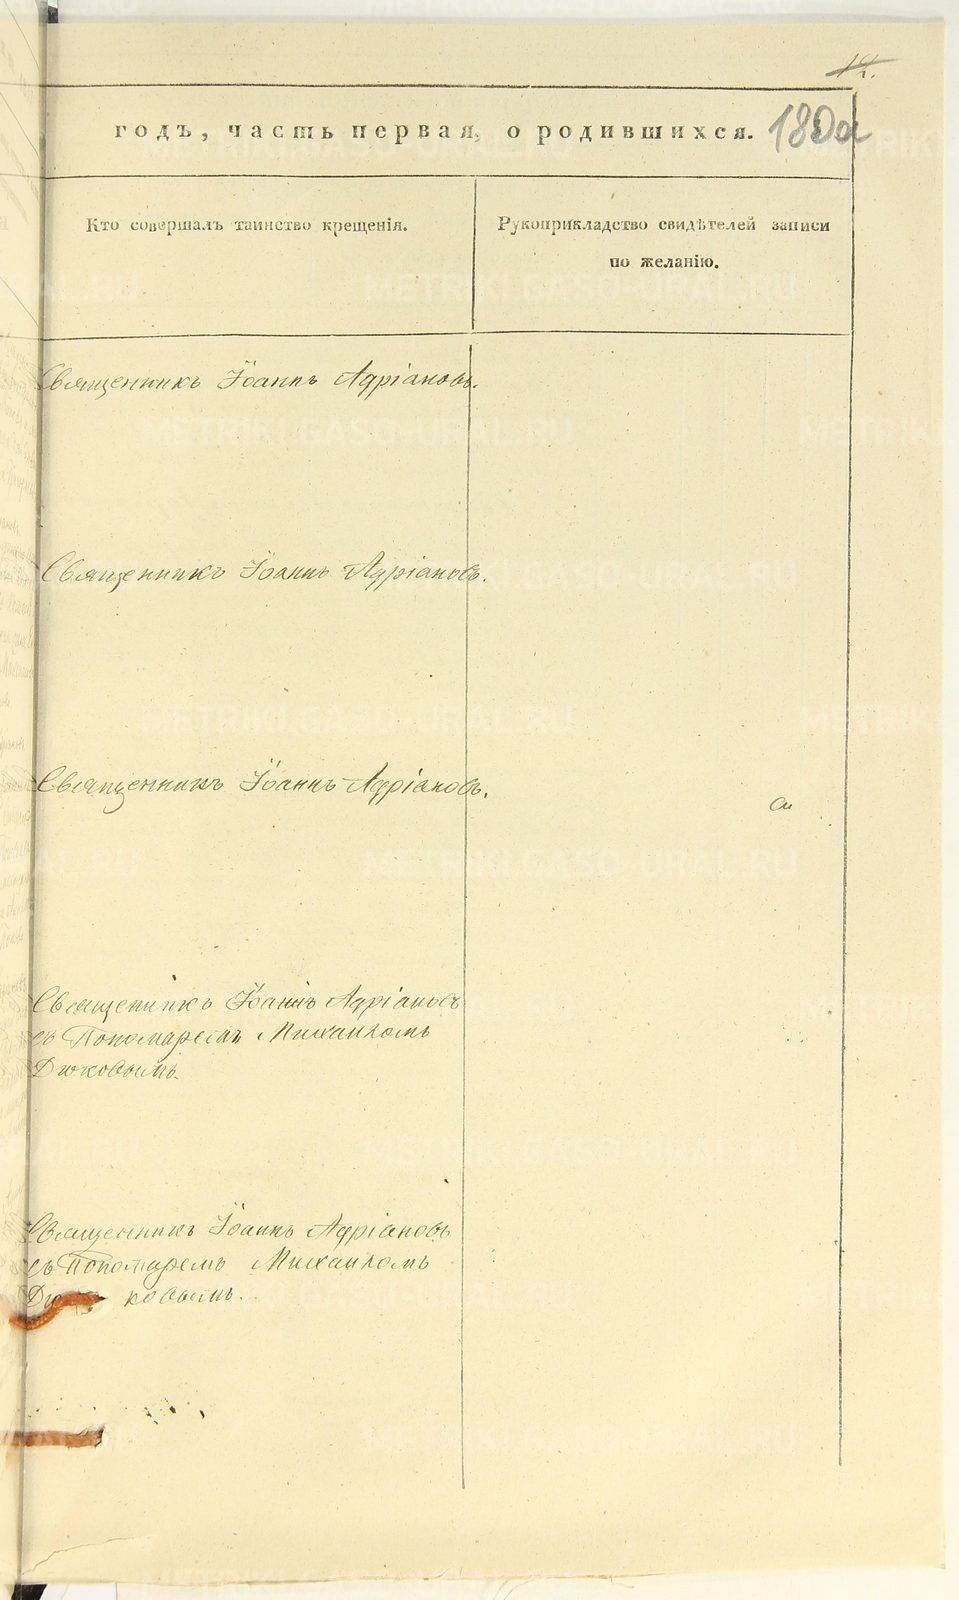 12.
годъ, часть первая, о родившихся. 180а
Кто совершалъ таинство крещенія.
Рукоприкладство свидѣтелей записи
по желанію.
Священникъ Іоаннъ Адріановъ.
Священникъ Іоаннъ Адріановъ.
Священникъ Іоаннъ Адріановъ.
Священникъ Іоаннъ Адріановъ
съ Пономаремъ Михаиломъ
Дюковымъ.
Священникъ Іоаннъ Адріановъ
съ Пономаремъ Михаиломъ
Дюковымъ.
METRIKI.GASO-URAL.RU